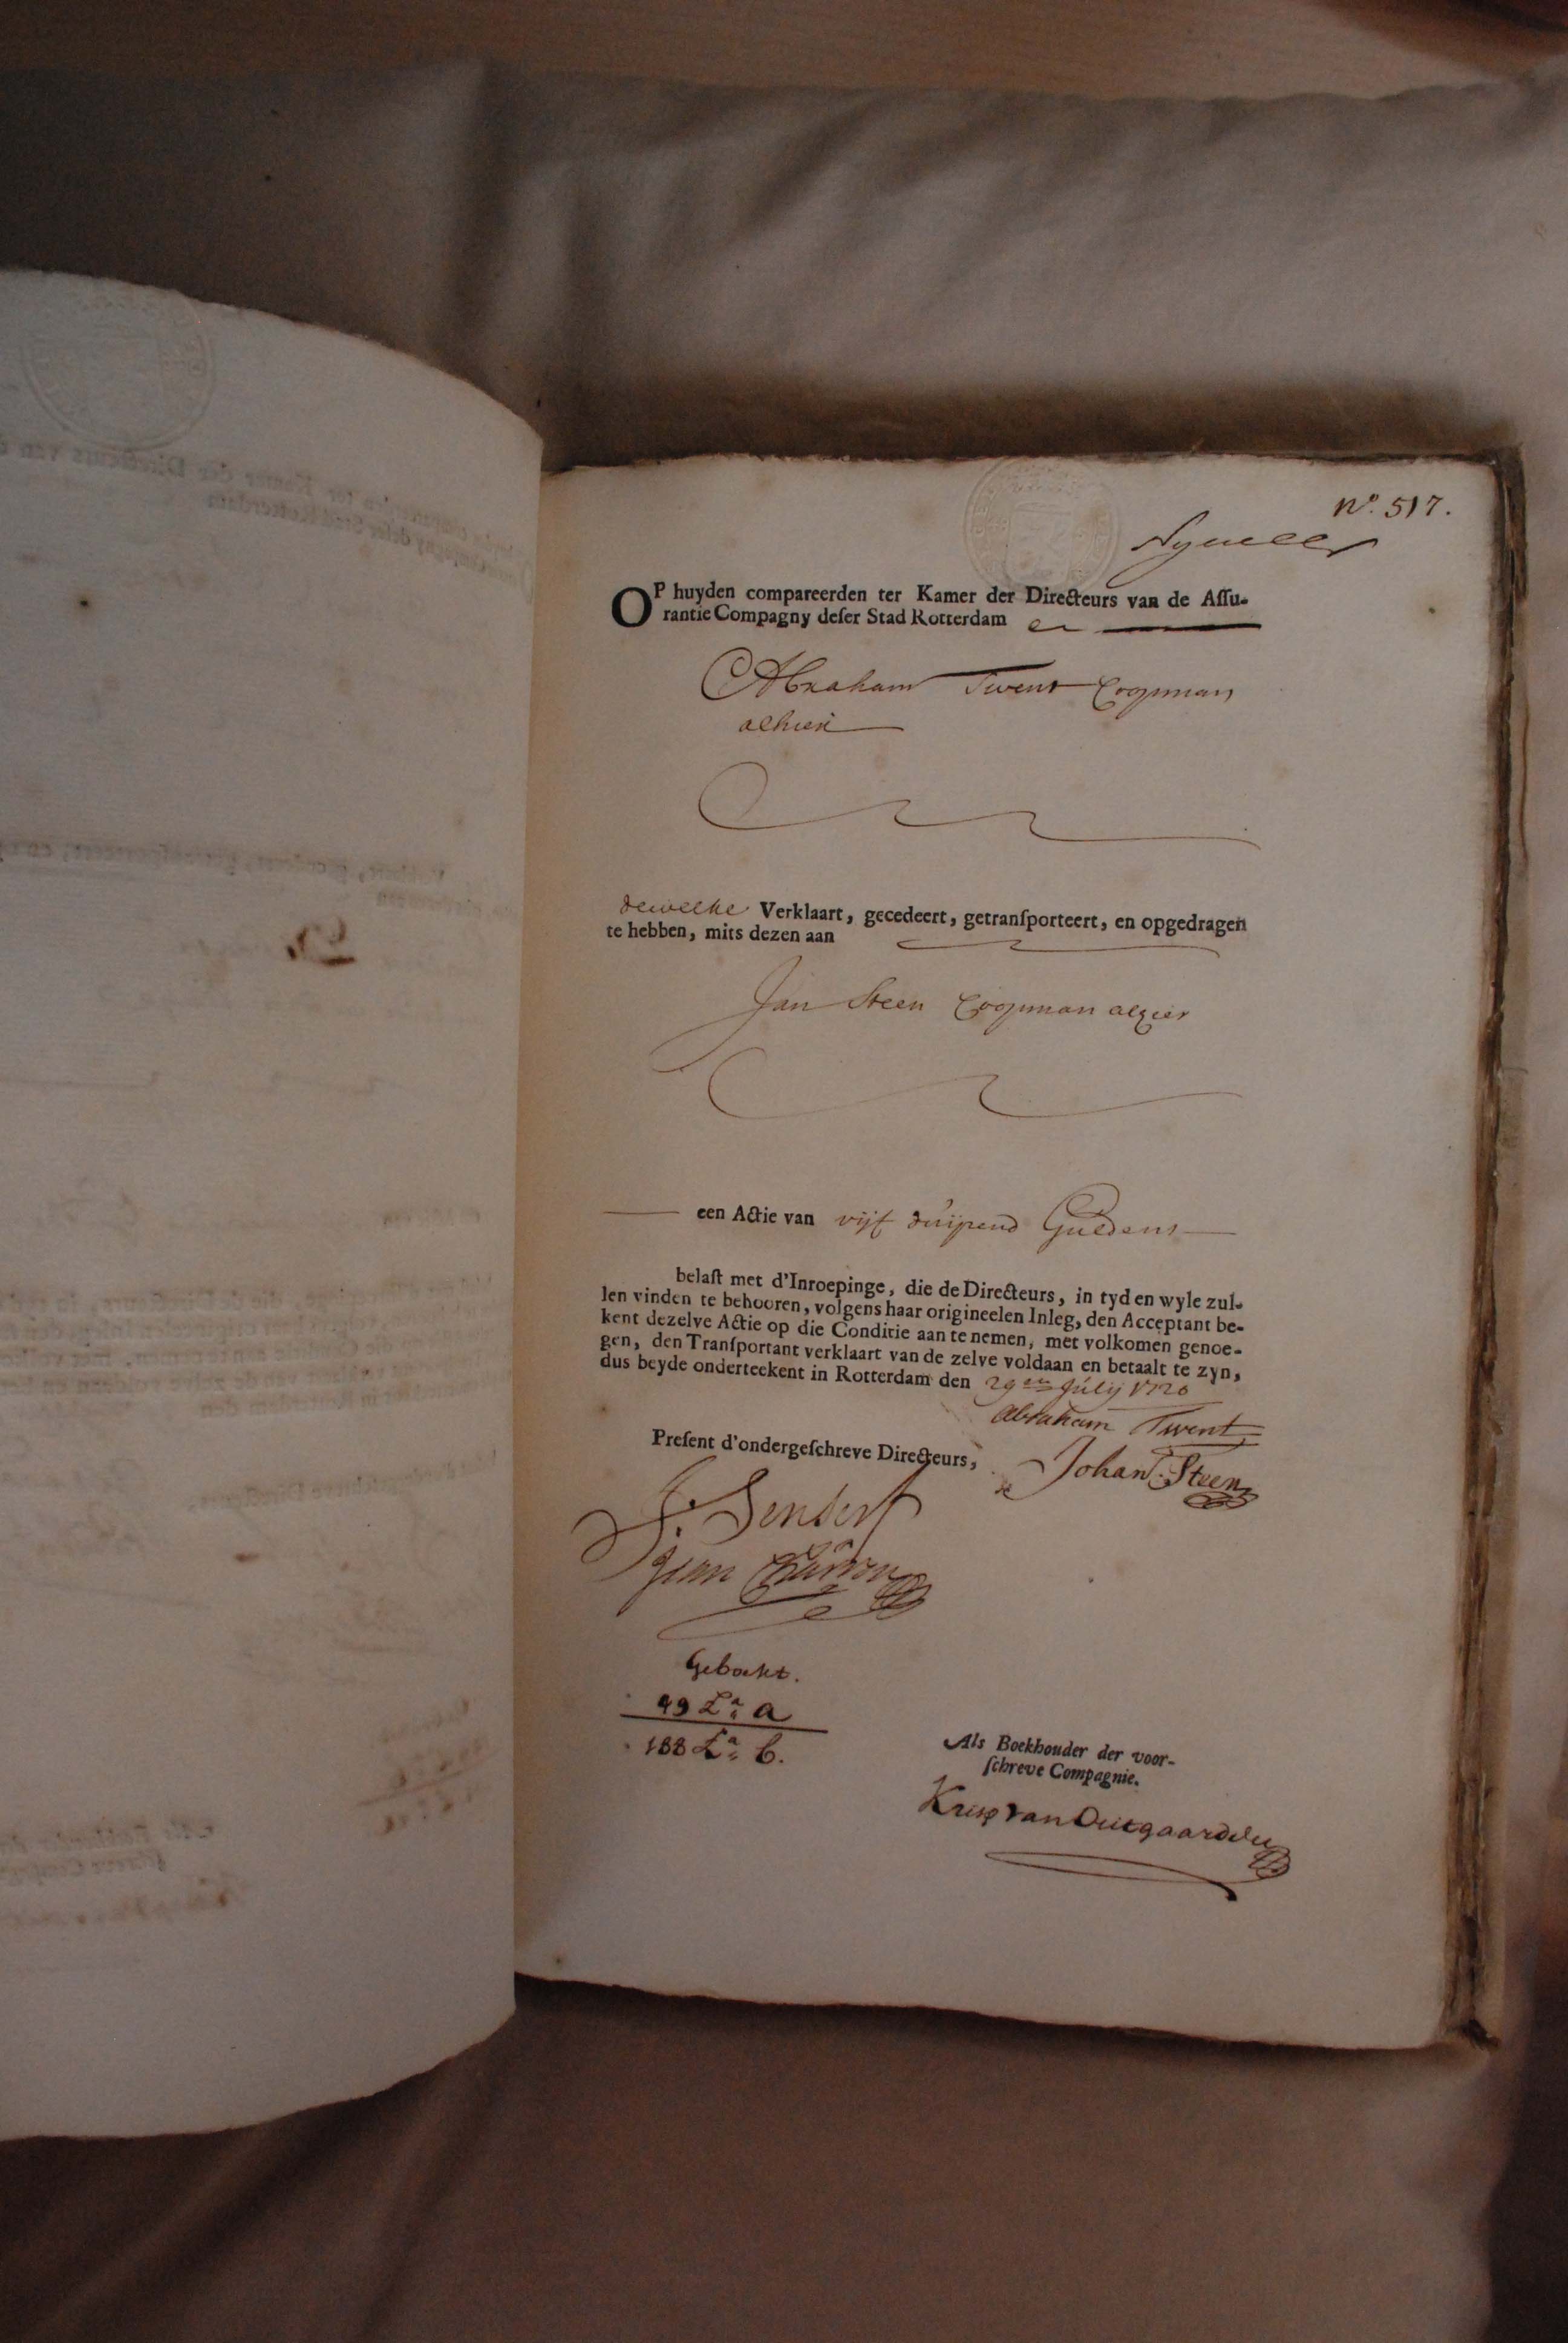 No. 517.
OP huyden compareerden ter Kamer der Directeurs van de Aſſu-
rantie Compagny deſer Stad Rotterdam
Abraham Twent Coopman
alhier
dewelke Verklaart, gecedeert, getranſporteert, en opgedragen
te hebben, mits dezen aan
Jan Steen Coopman alhier
een Actie van vijf duijsend Guldens
belaſt met d'Inroepinge, die de Directeurs, in tyd en wyle zul-
len vinden te behooren, volgens haar origineelen Inleg, den Acceptant be-
kent dezelve Actie op die Conditie aan te nemen, met volkomen genoe-
gen, den Tranſportant verklaart van de zelve voldaan en betaalt te zyn,
dus beyde onderteekent in Rotterdam den 29en Julij 1720
Abraham Twent
Preſent d'ondergeſchreve Directeurs,
Johan Steen
Geboekt.
49 La: a
188 La: b.
Als Boekhouder der voor-
ſchreve Compagnie.